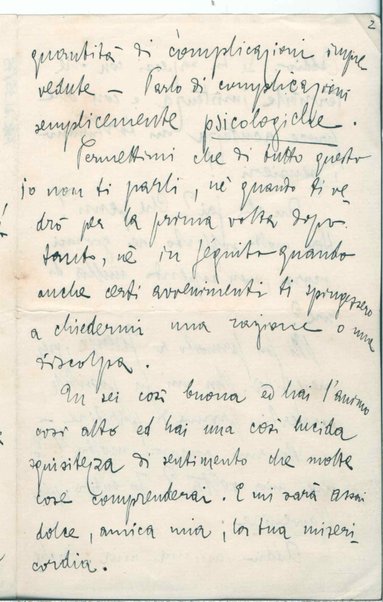 2
quantità di complicazioni impre
vedute – Parlo di complicazioni
semplicemente psicologiche.
Permettimi che di tutto questo
io non ti parli, nè quando ti ve-
drò per la prima volta dopo
tanto, nè in seguito quando
anche certi avvenimenti ti spingessero
a chiedermi una ragione o una
discolpa.
Tu sei così buona ed hai l'animo
così alto ed hai una così lucida
squisitezza di sentimento che molte
cose comprenderai. E mi sarà assai
dolce, amica mia, la tua miseri
cordia.